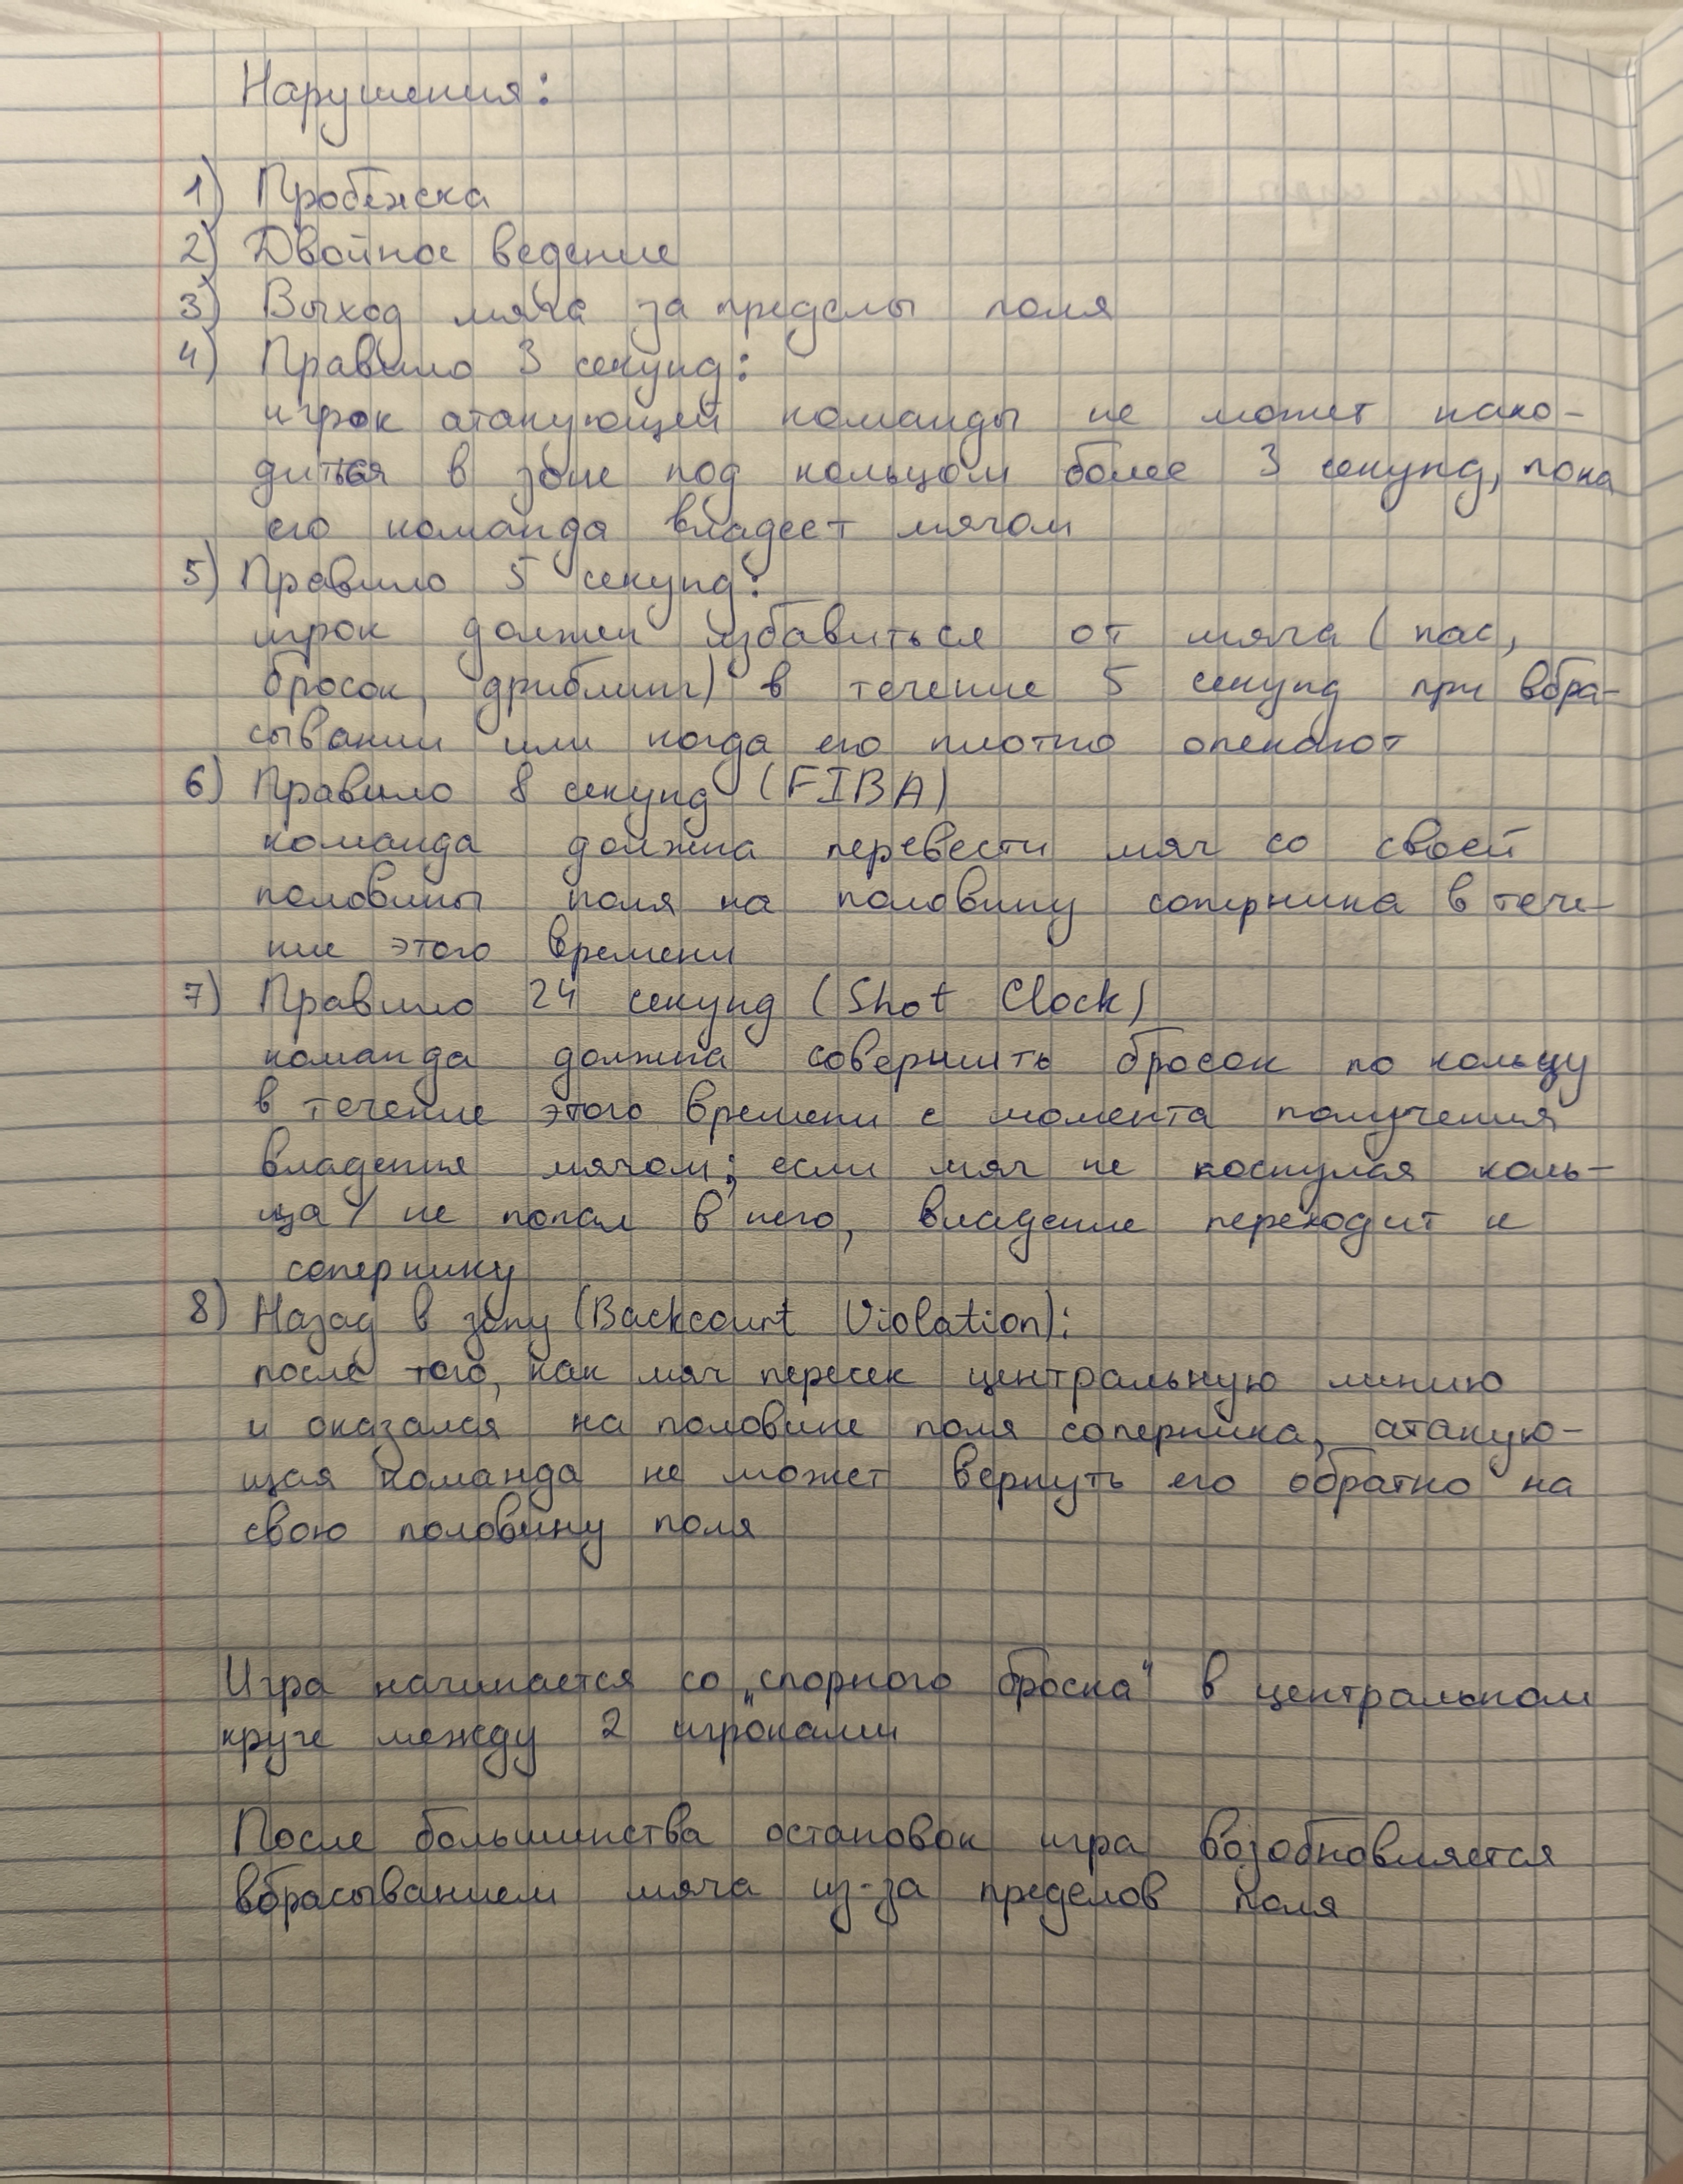 Нарушения:
1) Пробежка
2) Двойное ведение
3) Выход мяча за пределы поля
4) Правило 3 секунд:
игрок атакующей команды не может нахо-
диться в зоне под кольцом более 3 секунд, пока
его команда владеет мячом
5) Правило 5 секунд:
игрок должен избавиться от мяча (пас,
бросок, дриблинг) в течение 5 секунд при вбра-
сывании или когда его плотно опекают
6) Правило 8 секунд (FIBA)
команда должна перевести мяч со своей
половины поля на половину соперника в тече-
ние этого времени
7) Правило 24 секунд (Shot Clock)
команда должна совершить бросок по кольцу
в течение этого времени с момента получения
владения мячом; если мяч не коснулся коль-
ца / не попал в него, владение переходит к
сопернику
8) Назад в зону (Backcourt Violation):
после того, как мяч пересек центральную линию
и оказался на половине поля соперника, атакую-
щая команда не может вернуть его обратно на
свою половину поля
Игра начинается со „спорного броска" в центральном
круге между 2 игроками
После большинства остановок игра возобновляется
вбрасыванием мяча из-за пределов поля